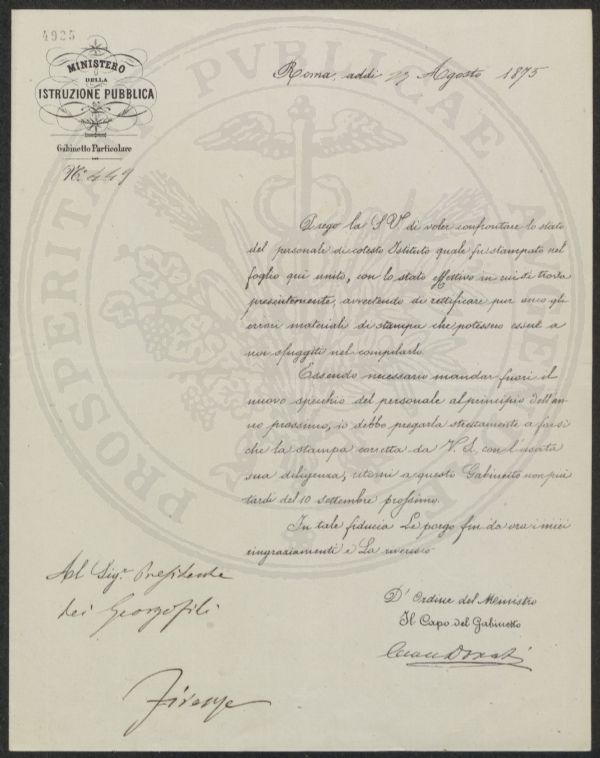 4925
MINISTERO
DELLA
ISTRUZIONE PUBBLICA
Gabinetto Particolare
N.º 449
Roma, addì 23 Agosto 1875
Prego la S.V. di voler confrontare lo stato
del personale di cotesto Istituto quale fu stampato nel
foglio qui unito, con lo stato effettivo in cui si trova
presentemente, avvertendo di rettificare pur anco gli
errori materiali di stampa che potessero essere a
noi sfuggiti nel compilarlo.
Essendo necessario mandar fuori il
nuovo specchio del personale al principio dell'an-
no prossimo, io debbo pregarla strettamente a far sì
che la stampa corretta da V. S. con l'usata
sua diligenza, ritorni a questo Gabinetto non più
tardi del 10 settembre prossimo.
In tale fiducia Le porgo fin da ora i miei
ringraziamenti e La riverisco
Al Sigr. Presidente
dei Georgofili
Firenze
D'Ordine del Ministro
Il Capo del Gabinetto
Donati
PROSPERITATI PVBLICAE